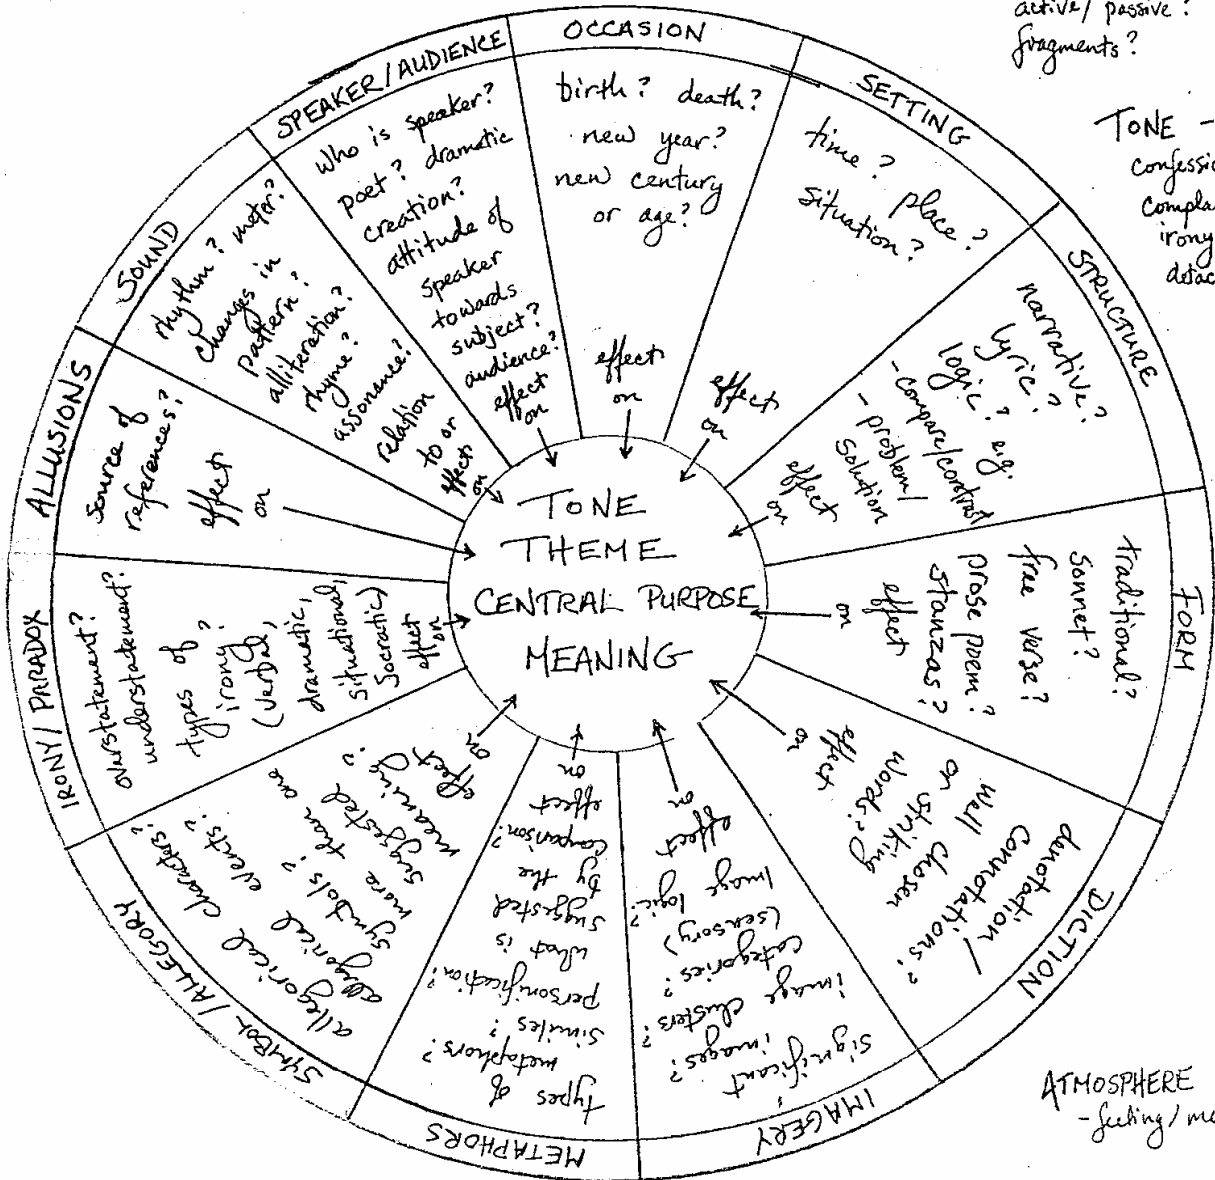 OCCASION
birth? death?
new year?
new century
or age?
effect
on
SETTING
time? place?
situation?
effect
on
STRUCTURE
narrative?
lyric?
logic? e.g.
- compare/contrast
- problem/
solution
effect
on
FORM
traditional?
sonnet?
free verse?
prose poem?
stanzas?
effect
on
DICTION
denotation/
connotations?
well chosen
or striking
words?
effect
on
IMAGERY
significant
images?
image clusters?
categories?
(sensory)
image logic?
effect
on
METAPHORS
types of
metaphors?
similes?
personification?
what is
suggested
by the
comparison?
effect
on
SYMBOL/ALLEGORY
allegorical characters?
allegorical events?
symbols?
more than one
suggested
meaning?
effect
on
IRONY/PARADOX
overstatement?
understatement?
types of
irony?
(verbal,
dramatic,
situational,
Socratic)
effect
on
ALLUSIONS
source of
references?
effect
on
SOUND
rhythm? meter?
changes in
pattern?
alliteration?
rhyme?
assonance?
relation
to or
effect
on
SPEAKER/AUDIENCE
who is speaker?
poet? dramatic
creation?
attitude of
speaker
towards
subject?
audience?
effect
on
TONE
THEME
CENTRAL PURPOSE
MEANING
active/passive?
fragments?
TONE -
confessi
compla
irony
detac
ATMOSPHERE
- feeling/